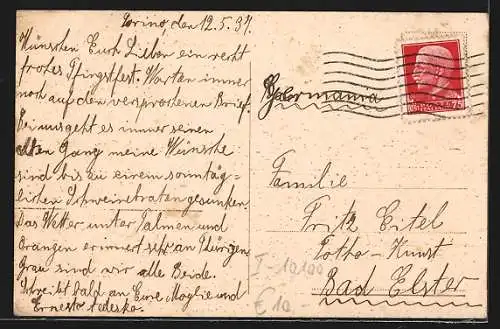 Torino, den 12.5.37.
Wünschen Euch Lieben ein recht
frohes Pfingstfest. Warten immer
noch auf den versprochenen Brief.
Bei uns geht es immer seinen
alten Gang meine Wünsche
sind bis zu einem sonntäg-
lichen Schweinebraten gesunken.
Das Wetter unter Palmen und
Orangen erinnert sehr an Thüringen
Grau sind wir alle Beide.
Schreibt bald an Eure Moglie und
Ernesto Tedesko.
Germania
75
Familie
Fritz Eitel
Foto-Kunst
Bad Elster
I-10100
€10